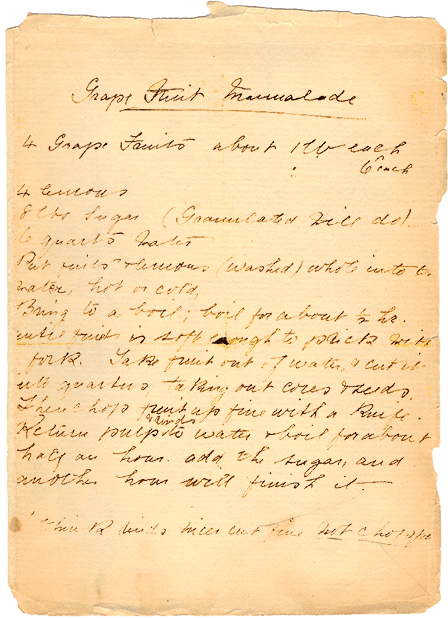 Grape Fruit Marmalade
4 Grape Fruits about 1 lb each
6" each
4 lemons
8 lbs Sugar (Granulated will do).
6 quarts water
Put fruits & lemons (washed) whole into
water, hot or cold,
Bring to a boil; boil for about
until fruit is soft enough to prick with
fork. Take fruit out of water, & cut it
into quarters taking out cores & seeds.
Then chop fruit up fine with a knife
& rinds
Return pulp to water & boil for about
half an hour. add the sugar, and
another hour will finish it.
I think rinds nicer cut fine not chopped